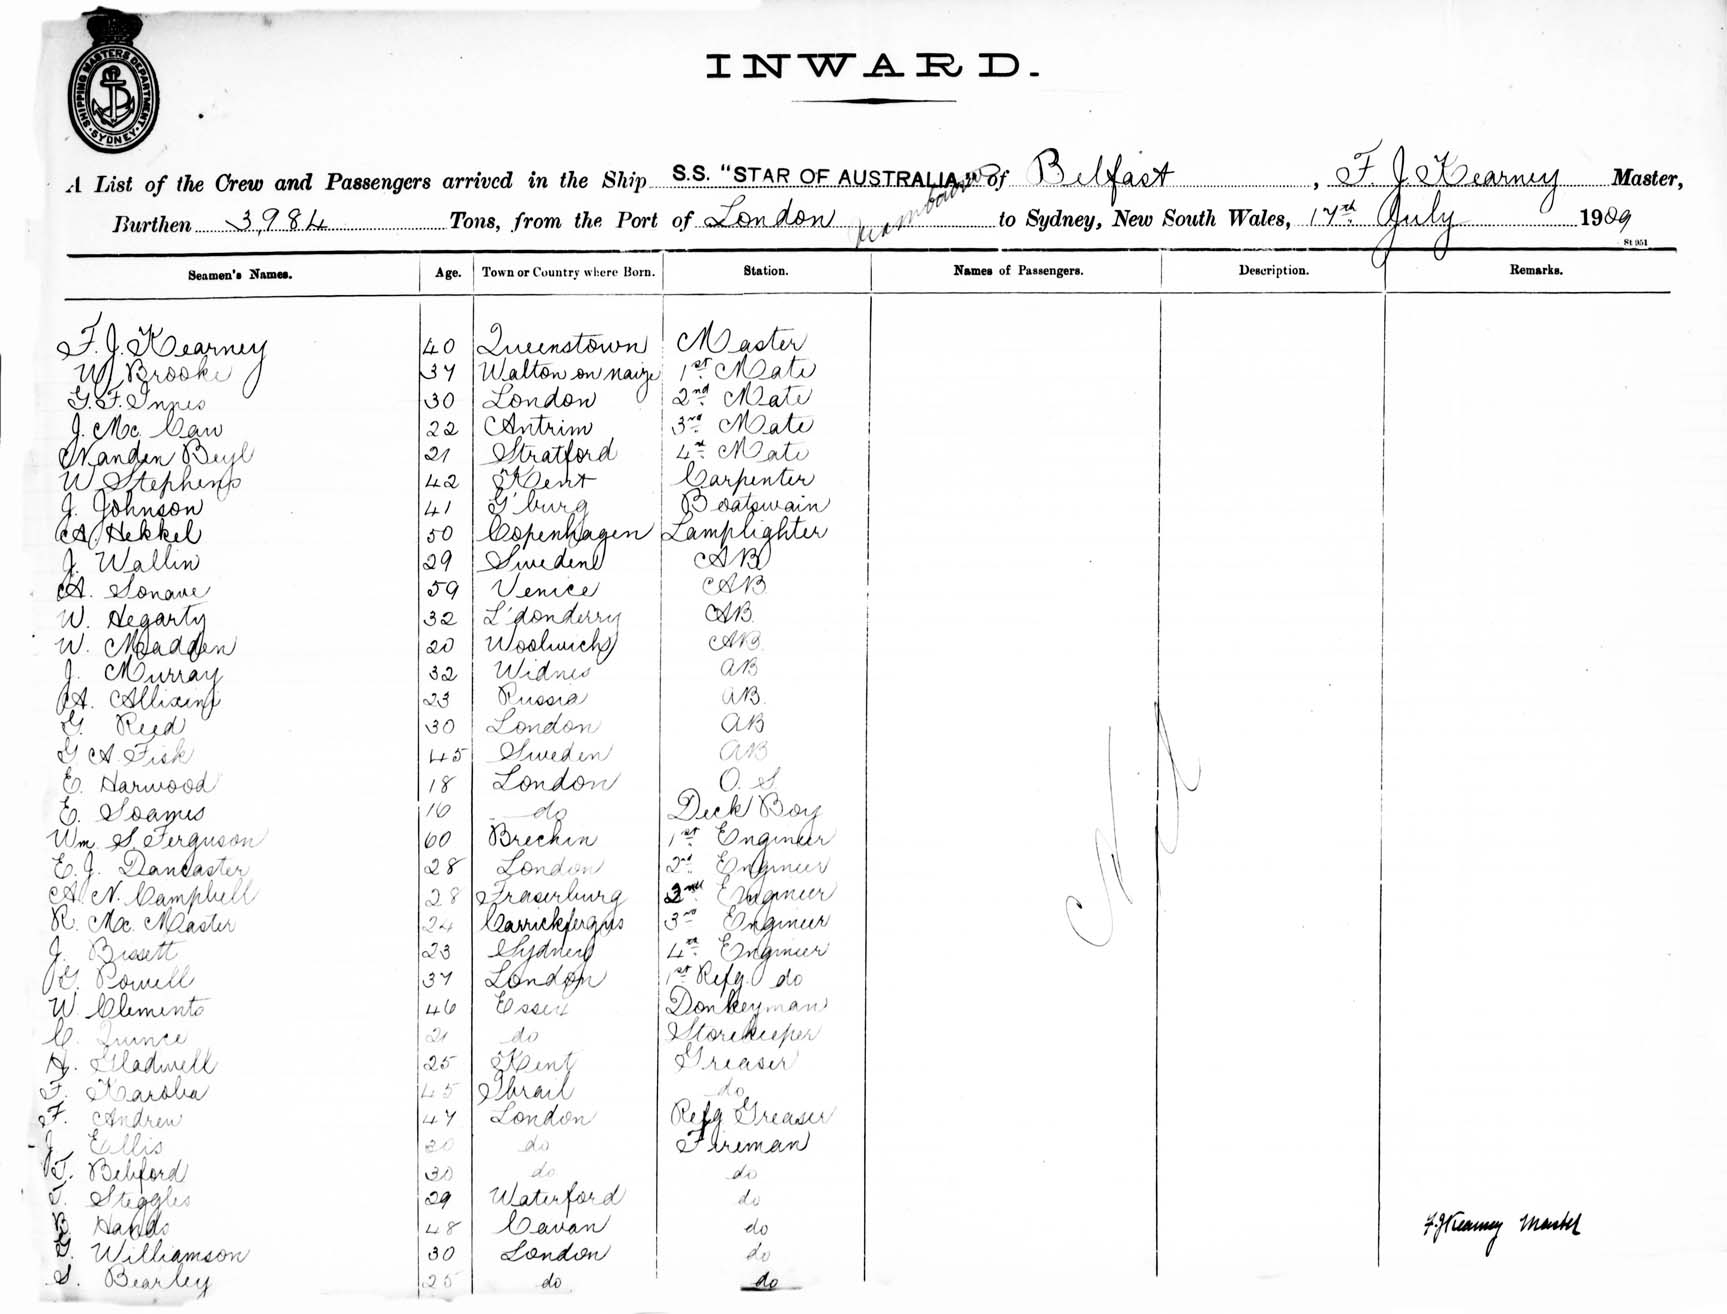 SHIPPING MASTERS DEPARTMENT · SYDNEY ·
INWARD.
A List of the Crew and Passengers arrived in the Ship S.S. "STAR OF AUSTRALIA" of Belfast, F. J. Kearney Master,
Burthen 3,984 Tons, from the Port of London to Sydney, New South Wales, 17th July 1909
St 951
Seamen's Names. Age. Town or Country where Born. Station. Names of Passengers. Description. Remarks.
F. J. Kearney 40 Queenstown Master
W Brooke 37 Walton on naize 1st Mate
G. F. Innes 30 London 2nd Mate
J. Mc Caw 22 Antrim 3rd Mate
Vanden Beyl 21 Stratford 4th Mate
W Stephens 42 Kent Carpenter
J. Johnson 41 G'burg Boatswain
A Hekkel 50 Copenhagen Lamplighter
J. Wallin 29 Sweden AB
A. Sonave 59 Venice AB
W. Hegarty 32 L'donderry AB.
W. Madden 20 Woolwich AB.
J. Murray 32 Widnes AB
A. Allixen 23 Russia AB.
G. Reed 30 London AB
G A Fisk 45 Sweden AB
E. Harwood 18 London O. S.
E. Soames 16 do Deck Boy
Wm S. Ferguson 60 Brechin 1st Engineer
E. J. Dancaster 28 London 2nd Engineer
A. N. Campbell 28 Fraserburg Engineer
R. Mc Master 24 Carrickfergus 3rd Engineer
J. Bissett 23 Sydney 4th Engineer
G. Powell 37 London 1st Refg. do
W Clements 46 Essex Donkeyman
C. Quince 21 do Storekeeper
H. Gladwell 25 Kent Greaser
F. Karolia 45 do
F. Andrew 47 London Refg Greaser
J. Ellis 30 do Fireman
T. Belford 30 do do
T. Steggles 29 Waterford do
B Hands 48 Cavan do
F. J Kearney Master
G. Williamson 30 London do
S. Bearley 25 do do